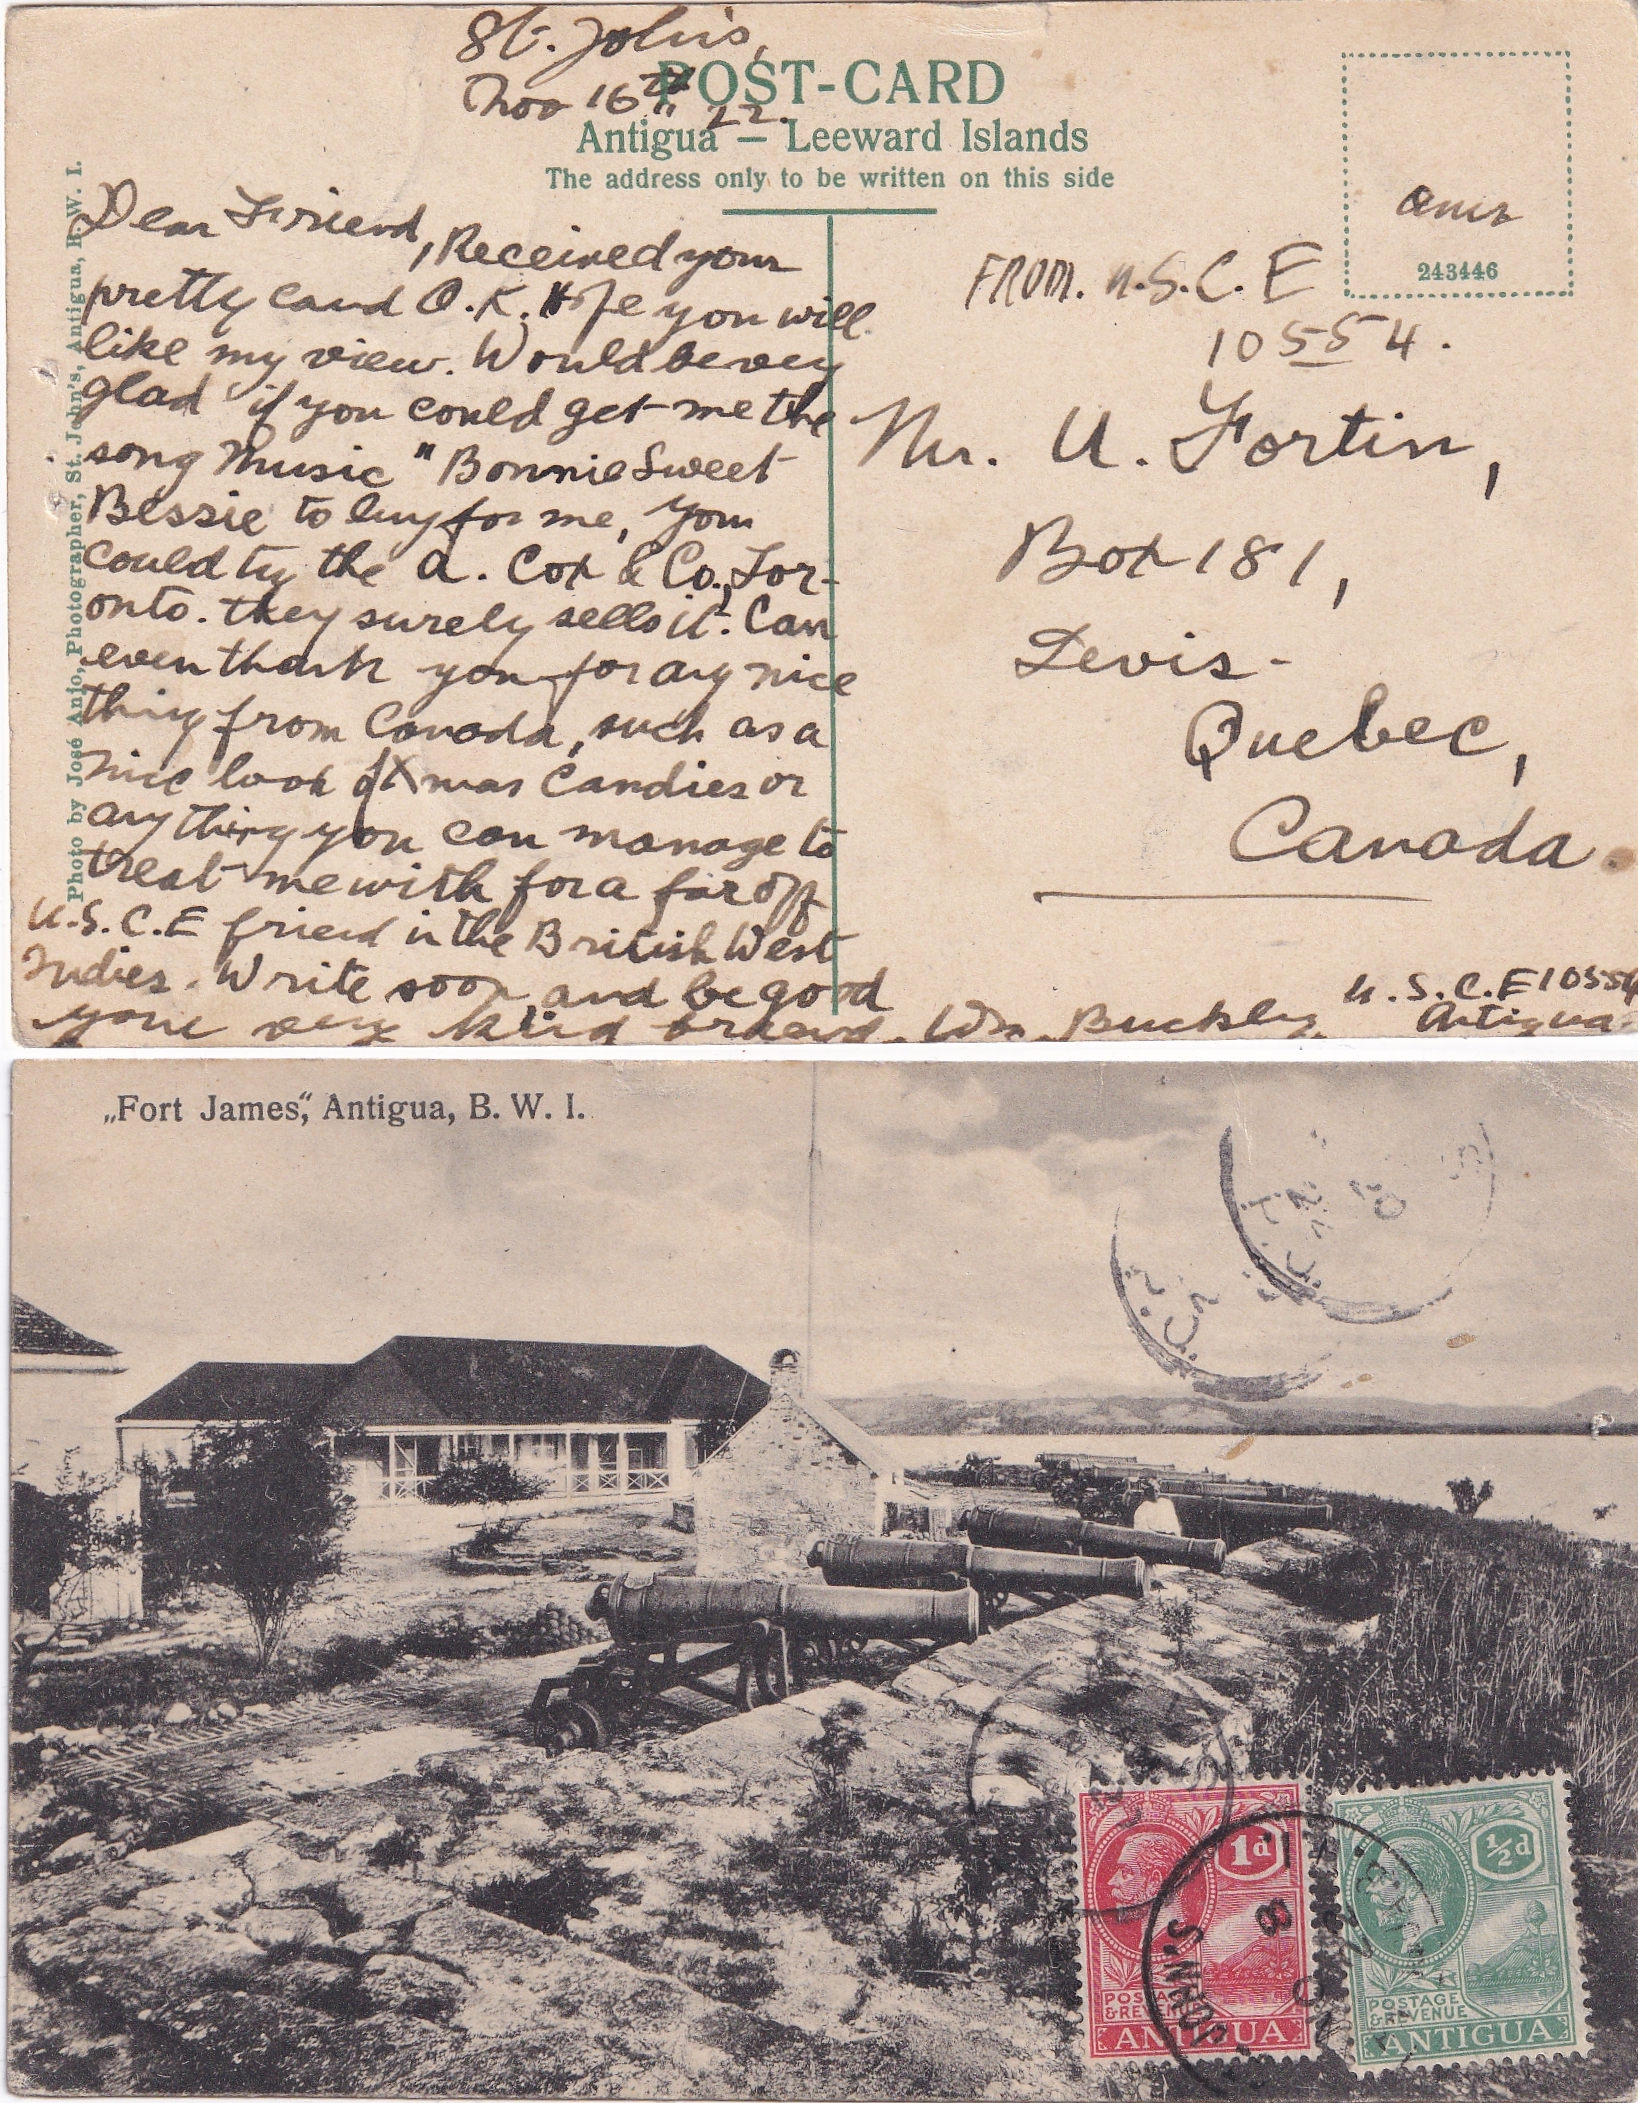 St. John's,
Nov 16th 22.
POST-CARD
Antigua — Leeward Islands
The address only to be written on this side
Photo by José Anjo, Photographer, St. John's, Antigua, B. W. I.
243446
Dear Friend, Received your
pretty card O.K. Hope you will
like my view. Would be very
glad if you could get me the
song Music "Bonnie Sweet
Bessie to buy for me, you
could try the A. Cox & Co., Tor-
onto. they surely sells it. Can
even thank you for any nice
thing from Canada, such as a
nice book of Xmas Candies or
any thing you can manage to
treat me with for a far off
U.S.C.E friend in the British West
Indies. Write soon and be good
your very kind friend, Wm. Buckley
U.S.C.E 10554
Antigua
FROM. U.S.C.E
10554.
Mr. U. Fortin,
Box 181,
Levis-
Quebec,
Canada.
„Fort James", Antigua, B. W. I.
1d
POSTAGE
& REVENUE
ANTIGUA
½d
POSTAGE
& REVENUE
ANTIGUA